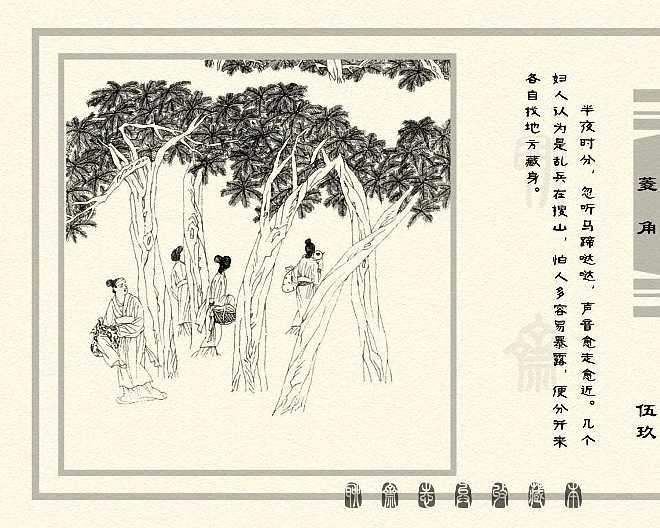 半夜时分，忽听马蹄哒哒，声音愈走愈近。几个
妇人认为是乱兵在搜山，怕人多容易暴露，便分开来
各自找地方藏身。
菱角
伍玖